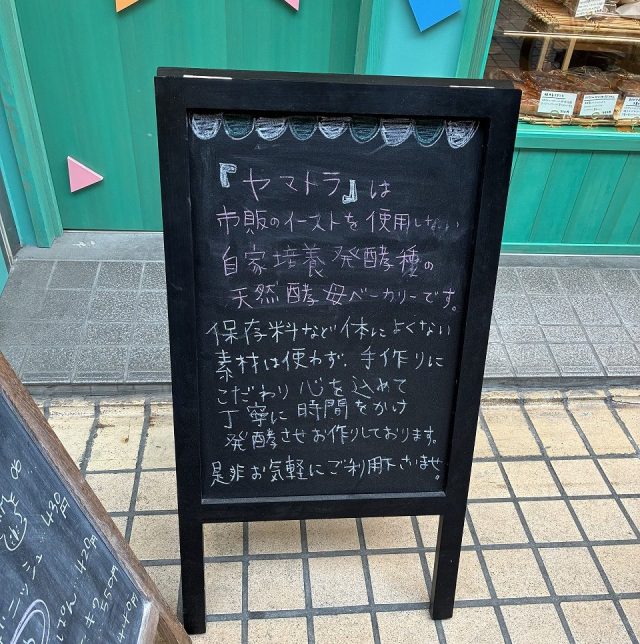 『ヤマトラ』は
市販のイーストを使用しない
自家培養発酵種の
天然酵母ベーカリーです。
保存料など体によくない
素材は使わず、手作りに
こだわり心を込めて
丁寧に時間をかけ
発酵させお作りしております。
是非お気軽にご利用下さいませ。
430円
ニッシュ 420円
550円
440円